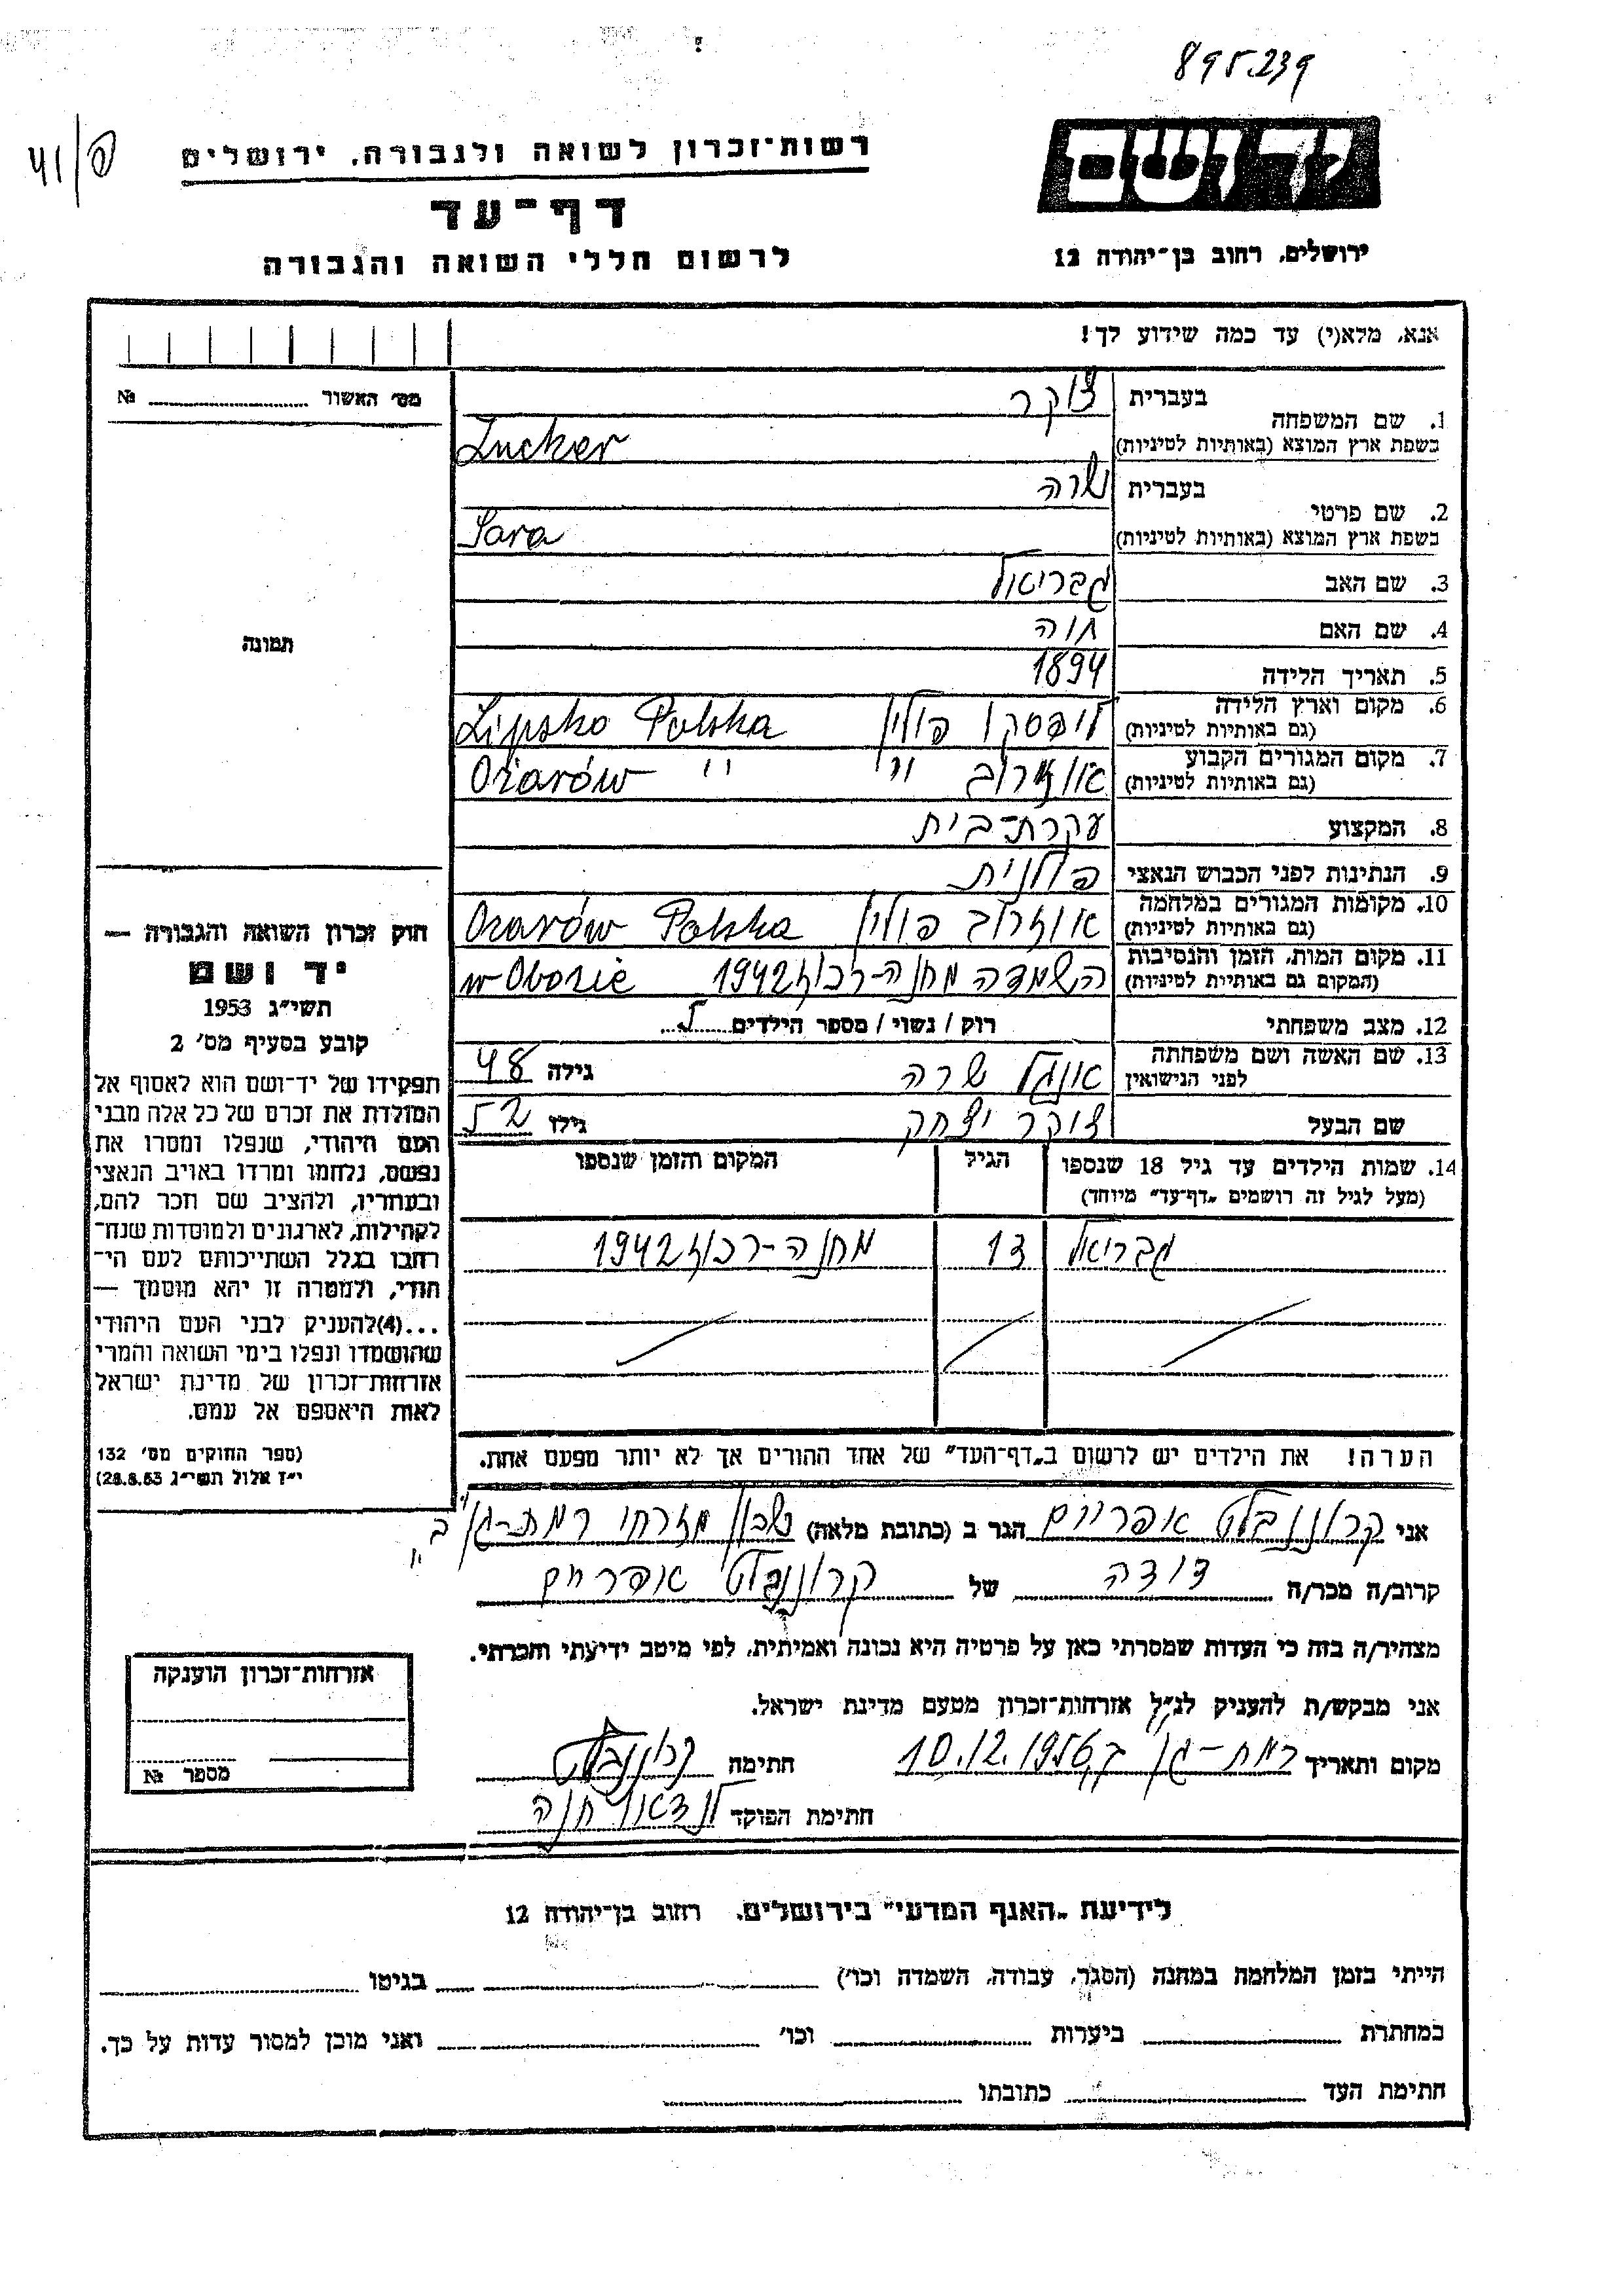 895.239
יד ושם
רשות־זכרון לשואה ולגבורה, ירושלים
דף־עד
ירושלים, רחוב בן־יהודה 12
לרשום חללי השואה והגבורה
אנא, מלא(י) עד כמה שידוע לך!
מס׳ האשור № 
1. שם המשפחה
בעברית צוקר
בשפת ארץ המוצא (באותיות לטיניות) Zucker
2. שם פרטי
בעברית שרה
בשפת ארץ המוצא (באותיות לטיניות) Sara
3. שם האב גבריאל
4. שם האם חוה
5. תאריך הלידה 1894
6. מקום וארץ הלידה ליפסקו פולין Lipsko Polska
(גם באותיות לטיניות)
7. מקום המגורים הקבוע אוזרוב " " Ożarów " "
(גם באותיות לטיניות)
8. המקצוע עקרת־בית
9. הנתינות לפני הכבוש הנאצי פולנית
10. מקומות המגורים במלחמה אוזרוב פולין Ożarów Polska
(גם באותיות לטיניות)
11. מקום המות, הזמן והנסיבות השמדה מחנה-רכוז 1942 w Obozie
(המקום גם באותיות לטיניות)
12. מצב משפחתי רוק / נשוי / מספר הילדים
13. שם האשה ושם משפחתה אנגל שרה גילה 48
לפני הנישואין
שם הבעל צוקר יצחק גילו 52
14. שמות הילדים עד גיל 18 שנספו הגיל המקום והזמן שנספו
(מעל לגיל זה רושמים „דף־עד" מיוחד)
גבריאל 13 מחנה-רכוז 1942
הערה! את הילדים יש לרשום ב„דף־העד" של אחד ההורים אך לא יותר מפעם אחת.
תמונה
חוק זכרון השואה והגבורה —
יד ושם
תשי״ג 1953
קובע בסעיף מס׳ 2
תפקידו של יד־ושם הוא לאסוף אל
המולדת את זכרם של כל אלה מבני
העם היהודי, שנפלו ומסרו את
נפשם, נלחמו ומרדו באויב הנאצי
ובעוזריו, ולהציב שם וזכר להם,
לקהילות, לארגונים ולמוסדות שנח־
רחבו בגלל השתייכותם לעם הי־
הודי, ולמטרה זו יהא מוסמך —
...(4)להעניק לבני העם היהודי
שהושמדו ונפלו בימי השואה והמרי
אזרחות־זכרון של מדינת ישראל
לאות היאספם אל עמם.
(ספר החוקים מס׳ 132
י״ז אלול תשי״ג 28.8.53)
אני קרוננבלט אפריים הגר ב (כתובת מלאה) שכון מזרחי רמת-גן ב'
קרוב/ה מכר/ה דודה של קרוננבלט אפרים
מצהיר/ה בזה כי העדות שמסרתי כאן על פרטיה היא נכונה ואמיתית, לפי מיטב ידיעתי והכרתי.
אני מבקש/ת להעניק לנ״ל אזרחות־זכרון מטעם מדינת ישראל.
מקום ותאריך רמת-גן 10.12.1956 חתימה קרוננבלט
חתימת הפוקד לנדאו חנה
אזרחות־זכרון הוענקה
מספר №
לידיעת „האגף המדעי" בירושלים, רחוב בן־יהודה 12
הייתי בזמן המלחמה במחנה (הסגר, עבודה, השמדה וכו׳) בגיטו
במחתרת ביערות וכו׳ ואני מוכן למסור עדות על כך.
חתימת העד כתובתו